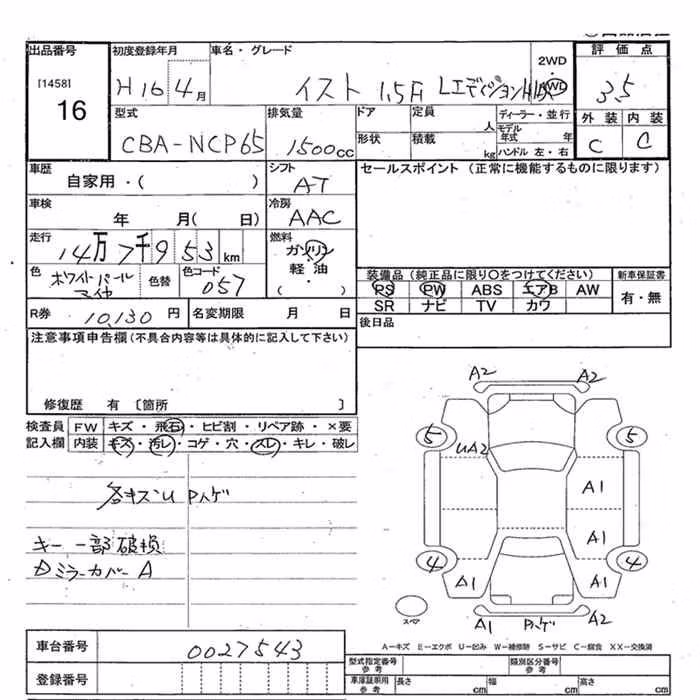 出品番号 初度登録年月 車名・グレード 2WD 評価点
[1458] 16
H16 4月 イスト 1.5F Lエディション 4WD 3.5
型式 排気量 ドア 定員 人 ディーラー・並行 外装 内装
CBA-NCP65 1500cc 形状 積載 kg モデル年式 年 ハンドル 左・右 C C
車歴 シフト セールスポイント (正常に機能するものに限ります)
自家用・( ) AT
車検 冷房
年 月( 日) AAC
走行 燃料
14万7千953km ガソリン・軽油・( )
色 色替 色コード 装備品(純正品に限り○をつけてください) 新車保証書
ホワイトパールマイカ 057 PS PW ABS エアB AW 有・無
SR ナビ TV カワ
R券 10,130円 名変期限 月 日 後日品
注意事項申告欄(不具合内容等は具体的に記入して下さい)
修復歴 有 〔箇所 〕
検査員 FW キズ・飛石・ヒビ割・リペア跡・×要
記入欄 内装 キズ・汚レ・コゲ・穴・スレ・キレ・破レ
各キズU Pハゲ
キー 一部破損
Dミラーカバー A
A2 A2
5 5
UA2
A1
A1
4 4
A1 A1
スペア A1 Pハゲ A2
A-キズ E-エクボ U-凹み W-補修跡 S-サビ C-腐食 XX-交換済
車台番号 0027543
型式指定番号 参考 類別区分番号 参考
登録番号 車庫証明用 参考 長さ cm 幅 cm 高さ cm